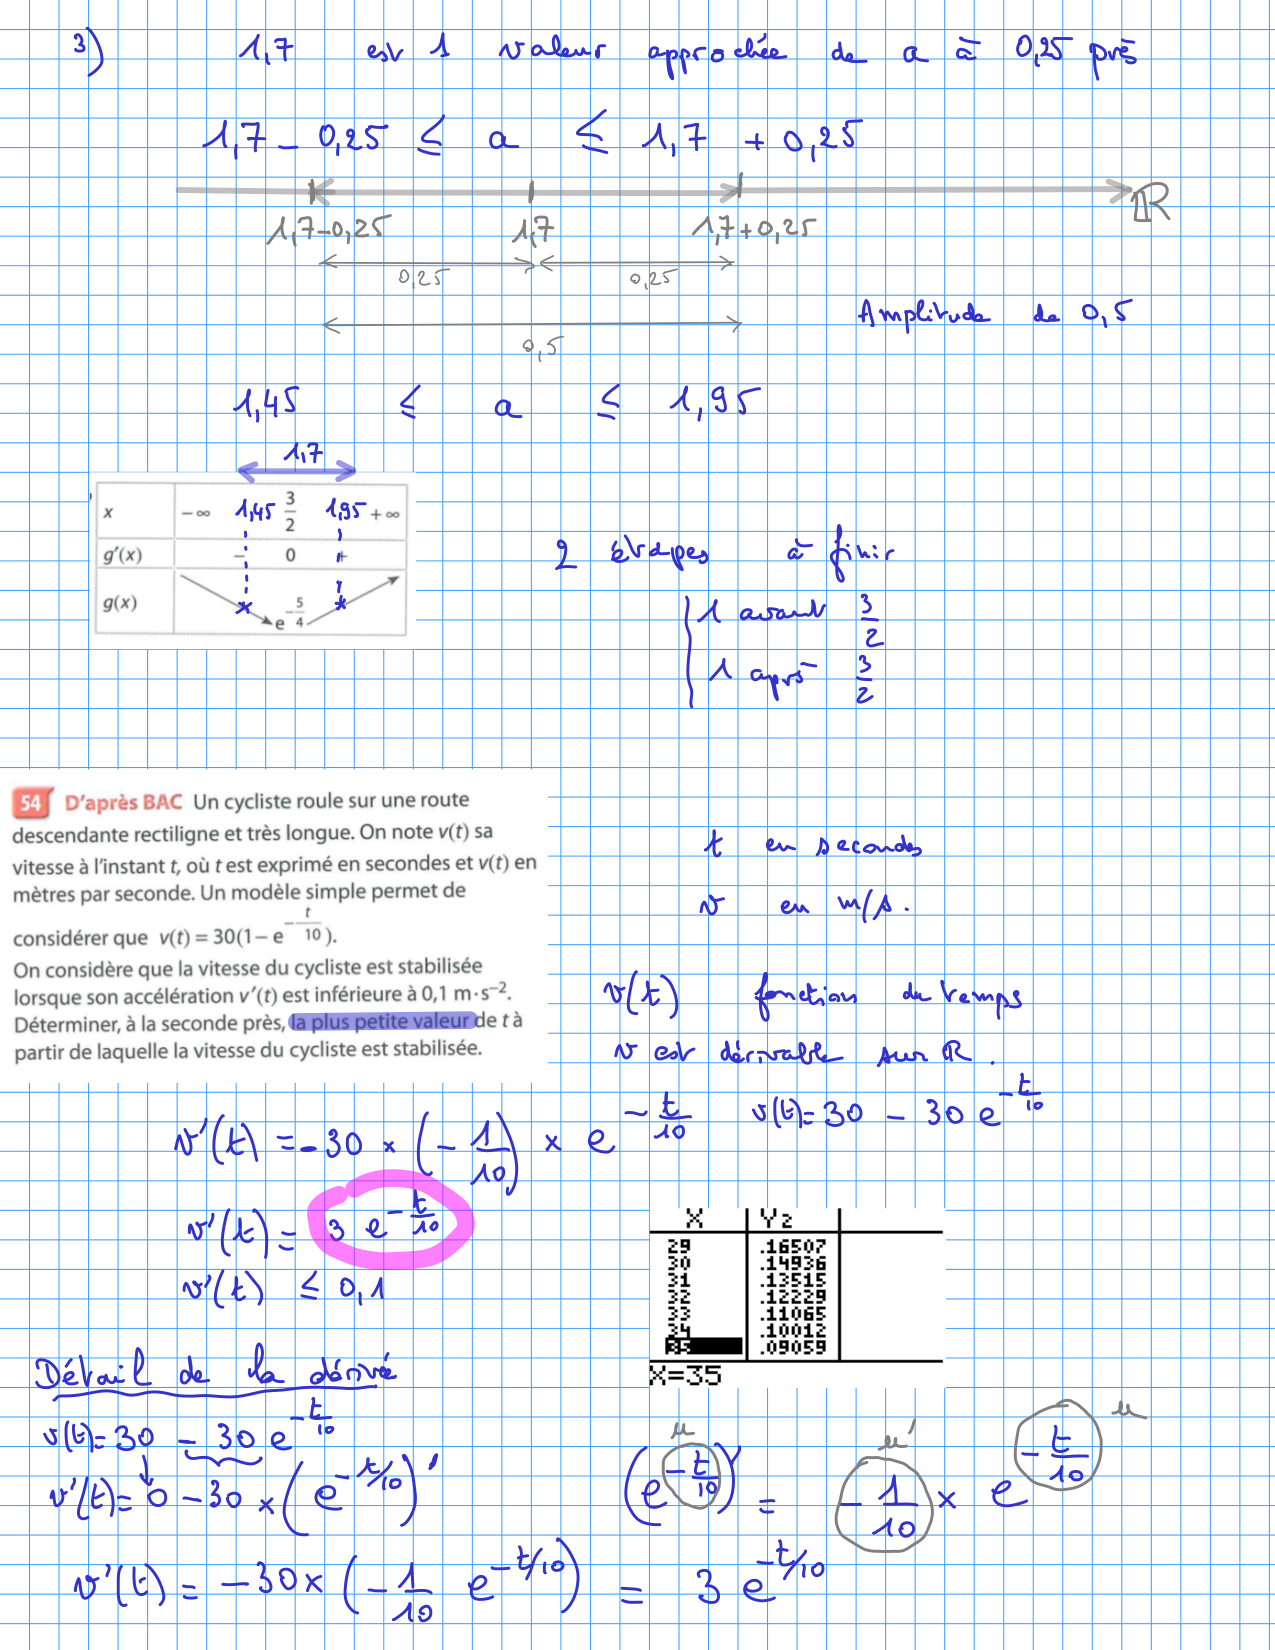 3) 1,7 est 1 valeur approchée de a à 0,25 près
1,7 - 0,25 ≤ a ≤ 1,7 + 0,25
ℝ
1,7-0,25 1,7 1,7+0,25
0,25 0,25
Amplitude de 0,5
0,5
1,45 ≤ a ≤ 1,95
1,7
x -∞ 1,45 3/2 1,95 +∞
g'(x) - 0 +
g(x) e^(-5/4)
2 étapes à finir
1 avant 3/2
1 après 3/2
54 D'après BAC Un cycliste roule sur une route
descendante rectiligne et très longue. On note v(t) sa
vitesse à l'instant t, où t est exprimé en secondes et v(t) en
mètres par seconde. Un modèle simple permet de
considérer que v(t) = 30(1 - e^(-t/10)).
On considère que la vitesse du cycliste est stabilisée
lorsque son accélération v'(t) est inférieure à 0,1 m·s⁻².
Déterminer, à la seconde près, la plus petite valeur de t à
partir de laquelle la vitesse du cycliste est stabilisée.
t en secondes
v en m/s.
v(t) fonction du temps
v est dérivable sur ℝ.
v(t) = 30 - 30 e^(-t/10)
v'(t) = -30 × (-1/10) × e^(-t/10)
v'(t) = 3 e^(-t/10)
v'(t) ≤ 0,1
X Y₂
29 .16507
30 .14936
31 .13515
32 .12229
33 .11065
34 .10012
35 .09059
X=35
Détail de la dérivée
v(t) = 30 - 30 e^(-t/10)
v'(t) = 0 - 30 × (e^(-t/10))'
u u' u
(e^(-t/10))' = -1/10 × e^(-t/10)
v'(t) = -30 × (-1/10 e^(-t/10)) = 3 e^(-t/10)